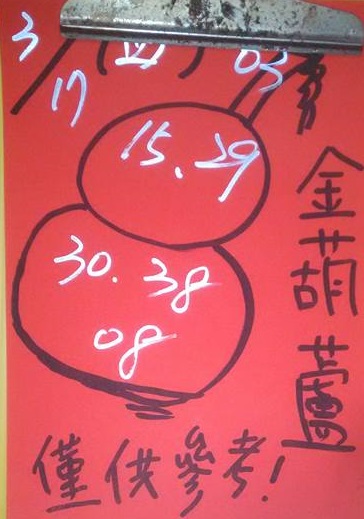 3/17 (四) 03
15. 29
30. 38
08
金葫蘆
僅供參考!